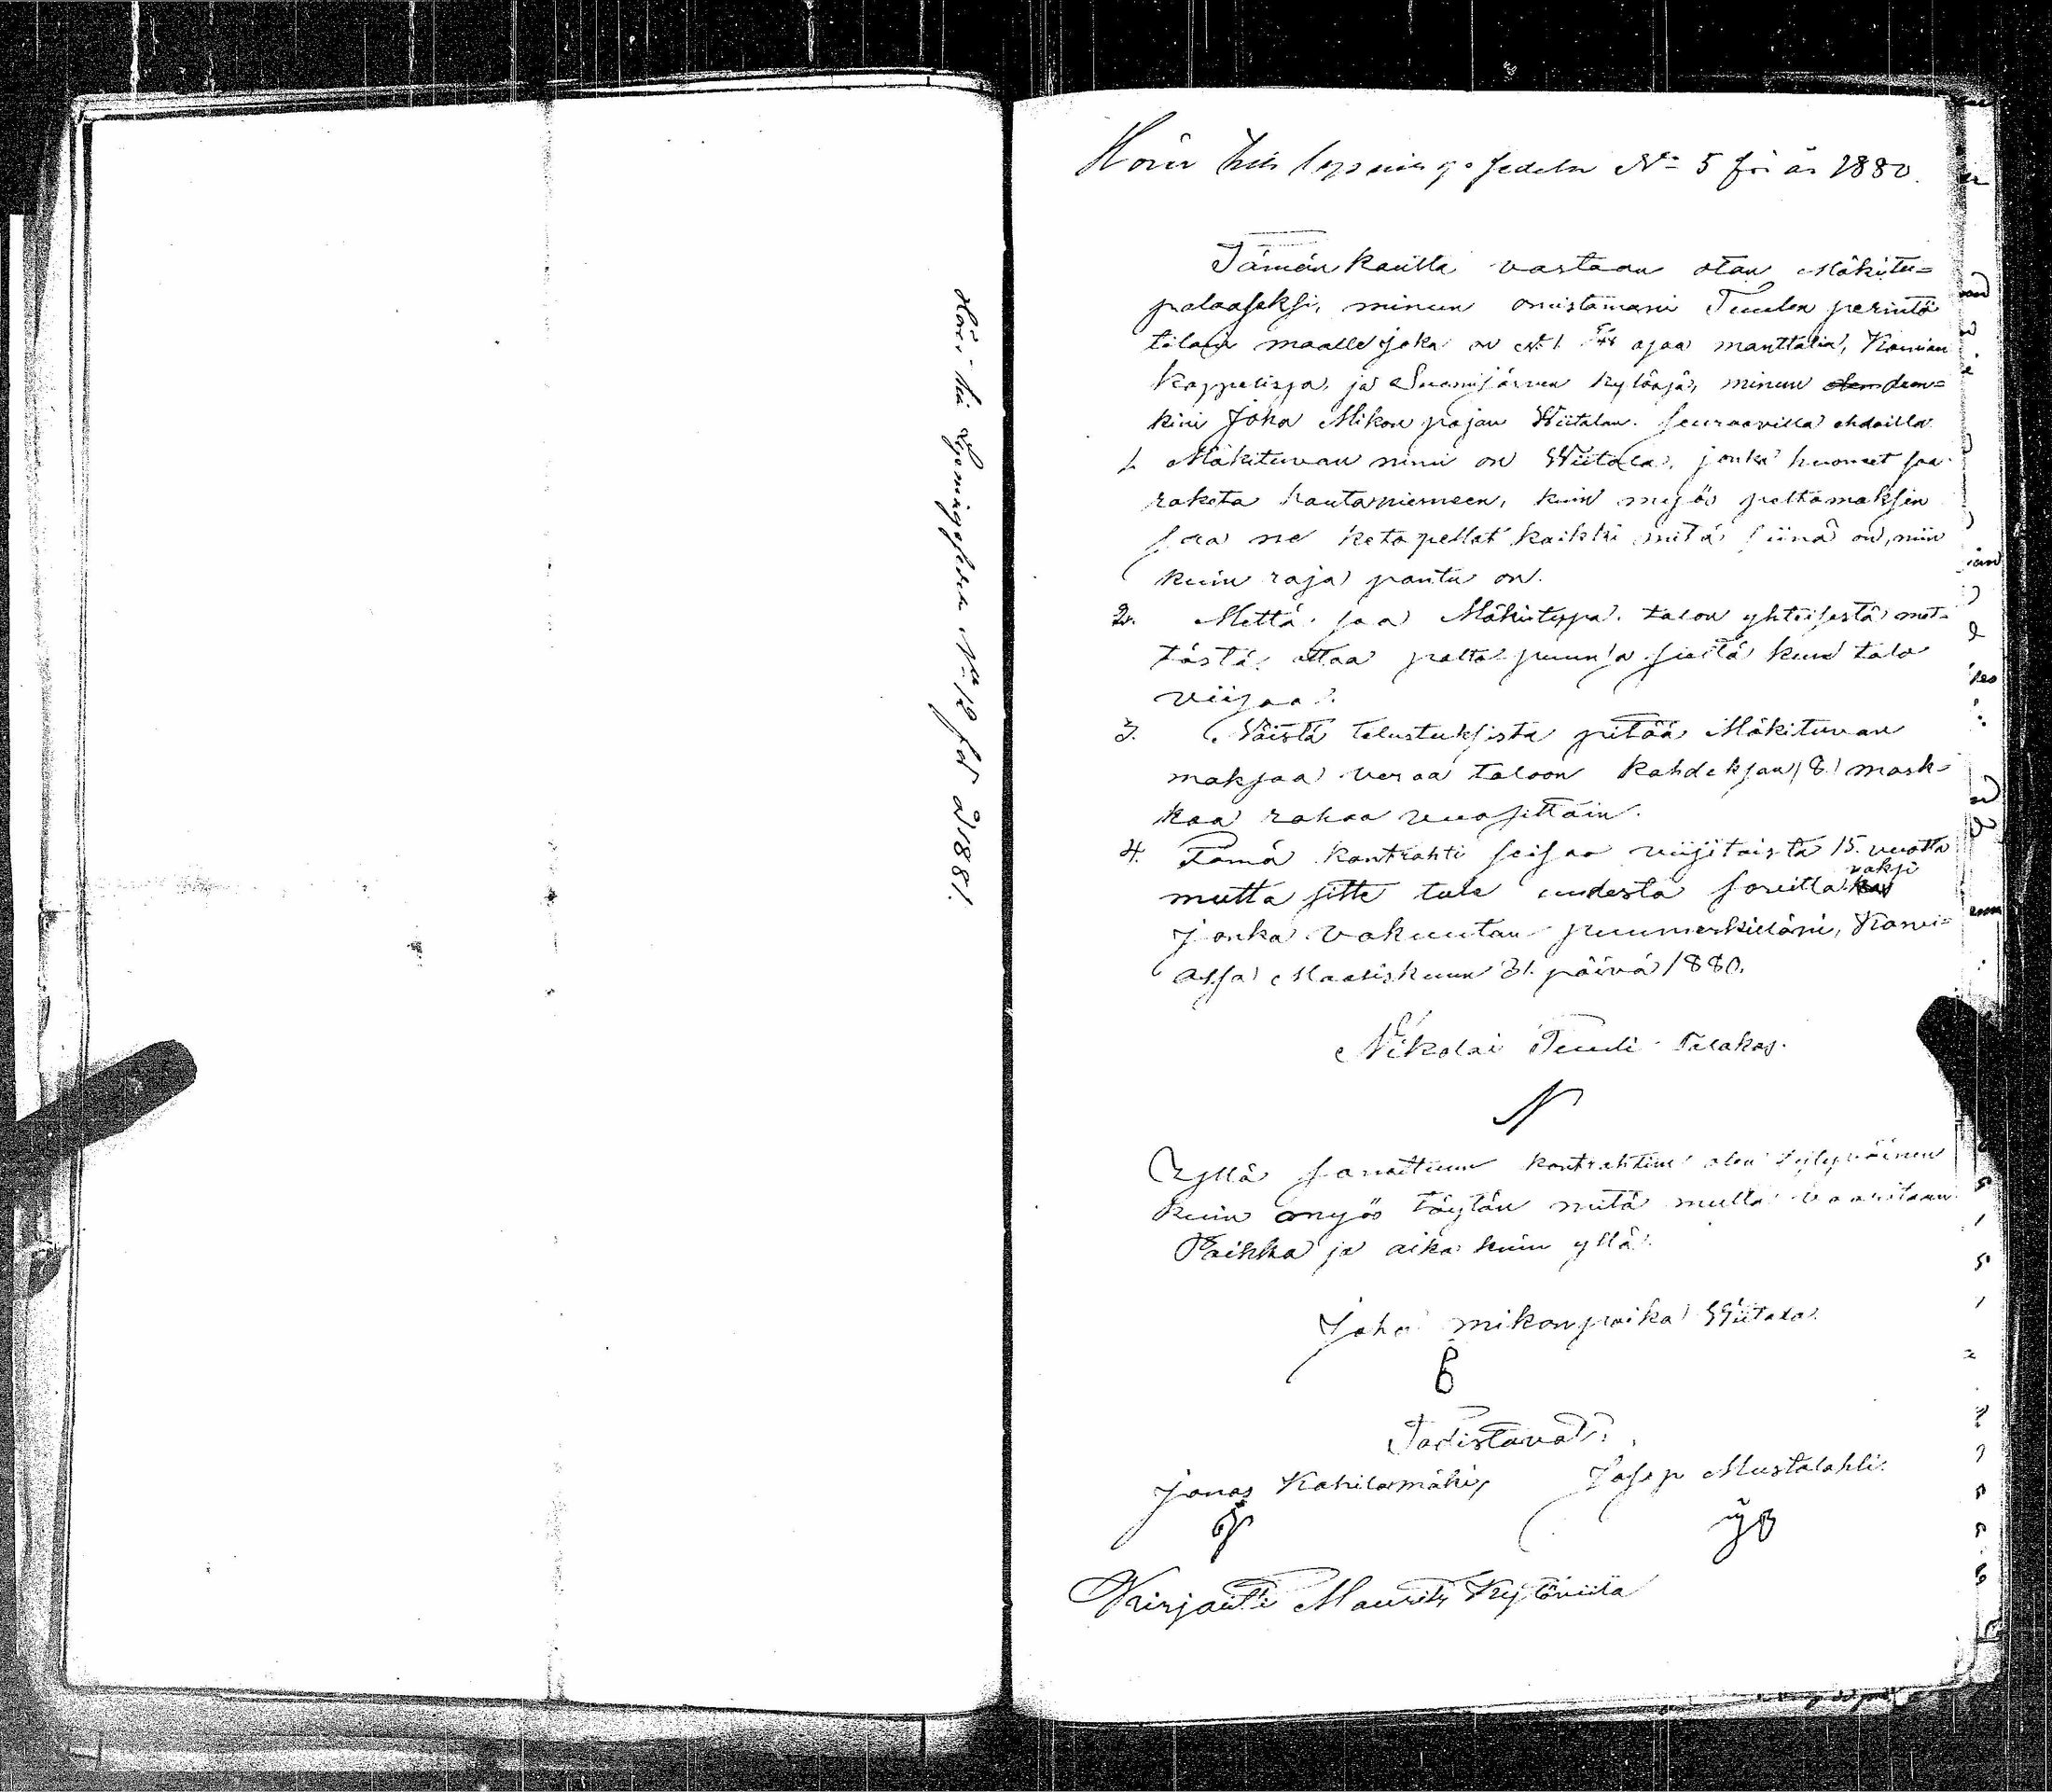 Hörer till Lysningssedeln No 12 för år 1881.
Hörer till lysningssedeln No 5 för år 1880.
Tämän kautta vastaan otan Mäkitu=
palaaseksi, minun omistamani Tuulen perintö
tilani maalle joka on N:o 1 ajaa manttalia, Karvian
kappelissa, ja Suomijärven kylääsä, minun
Joha Mikon pojan Wiitalan. seuraavilla ehdoilla
1. Mäkituvan nimi on Wiitala, jonka huoneet saa
raketa hautaniemeen, kuin myös peltomaksin
saa ne keto pellot kaikki mitä siinä on, niin
kuin raja pantu on.
2. Mettä saa Mäkitupa talon yhteisestä met-
tästä ottaa poltto puunsa siitä kuin talo
viijaa.
3. Näistä Nautuksista pitää Mäkituvan
maksaa veroa taloon kahdeksan (8) mark-
kaa rahaa vuosittain.
4. Tämä kontrahti seisoo viisitoista 15. vuotta
mutta sitte tule uudesta sovitta vaksi
jonka vakuutan puumerkilläni, Karvi=
assa Maaliskuun 31. päivä 1880.
Nikolai Tuuli Talakas.
N
Yllä sanottuun kontrahtiin olen tytyväinen
kuin myös täytän mitä multa vaaditaan
Paikka ja aika kuin yllä.
Joha mikonpoika Wiitala.
Todistavat:
Jonas Kahilamäki, Josep Mustalahti.
Kirjoitti Maurits Kytöviita